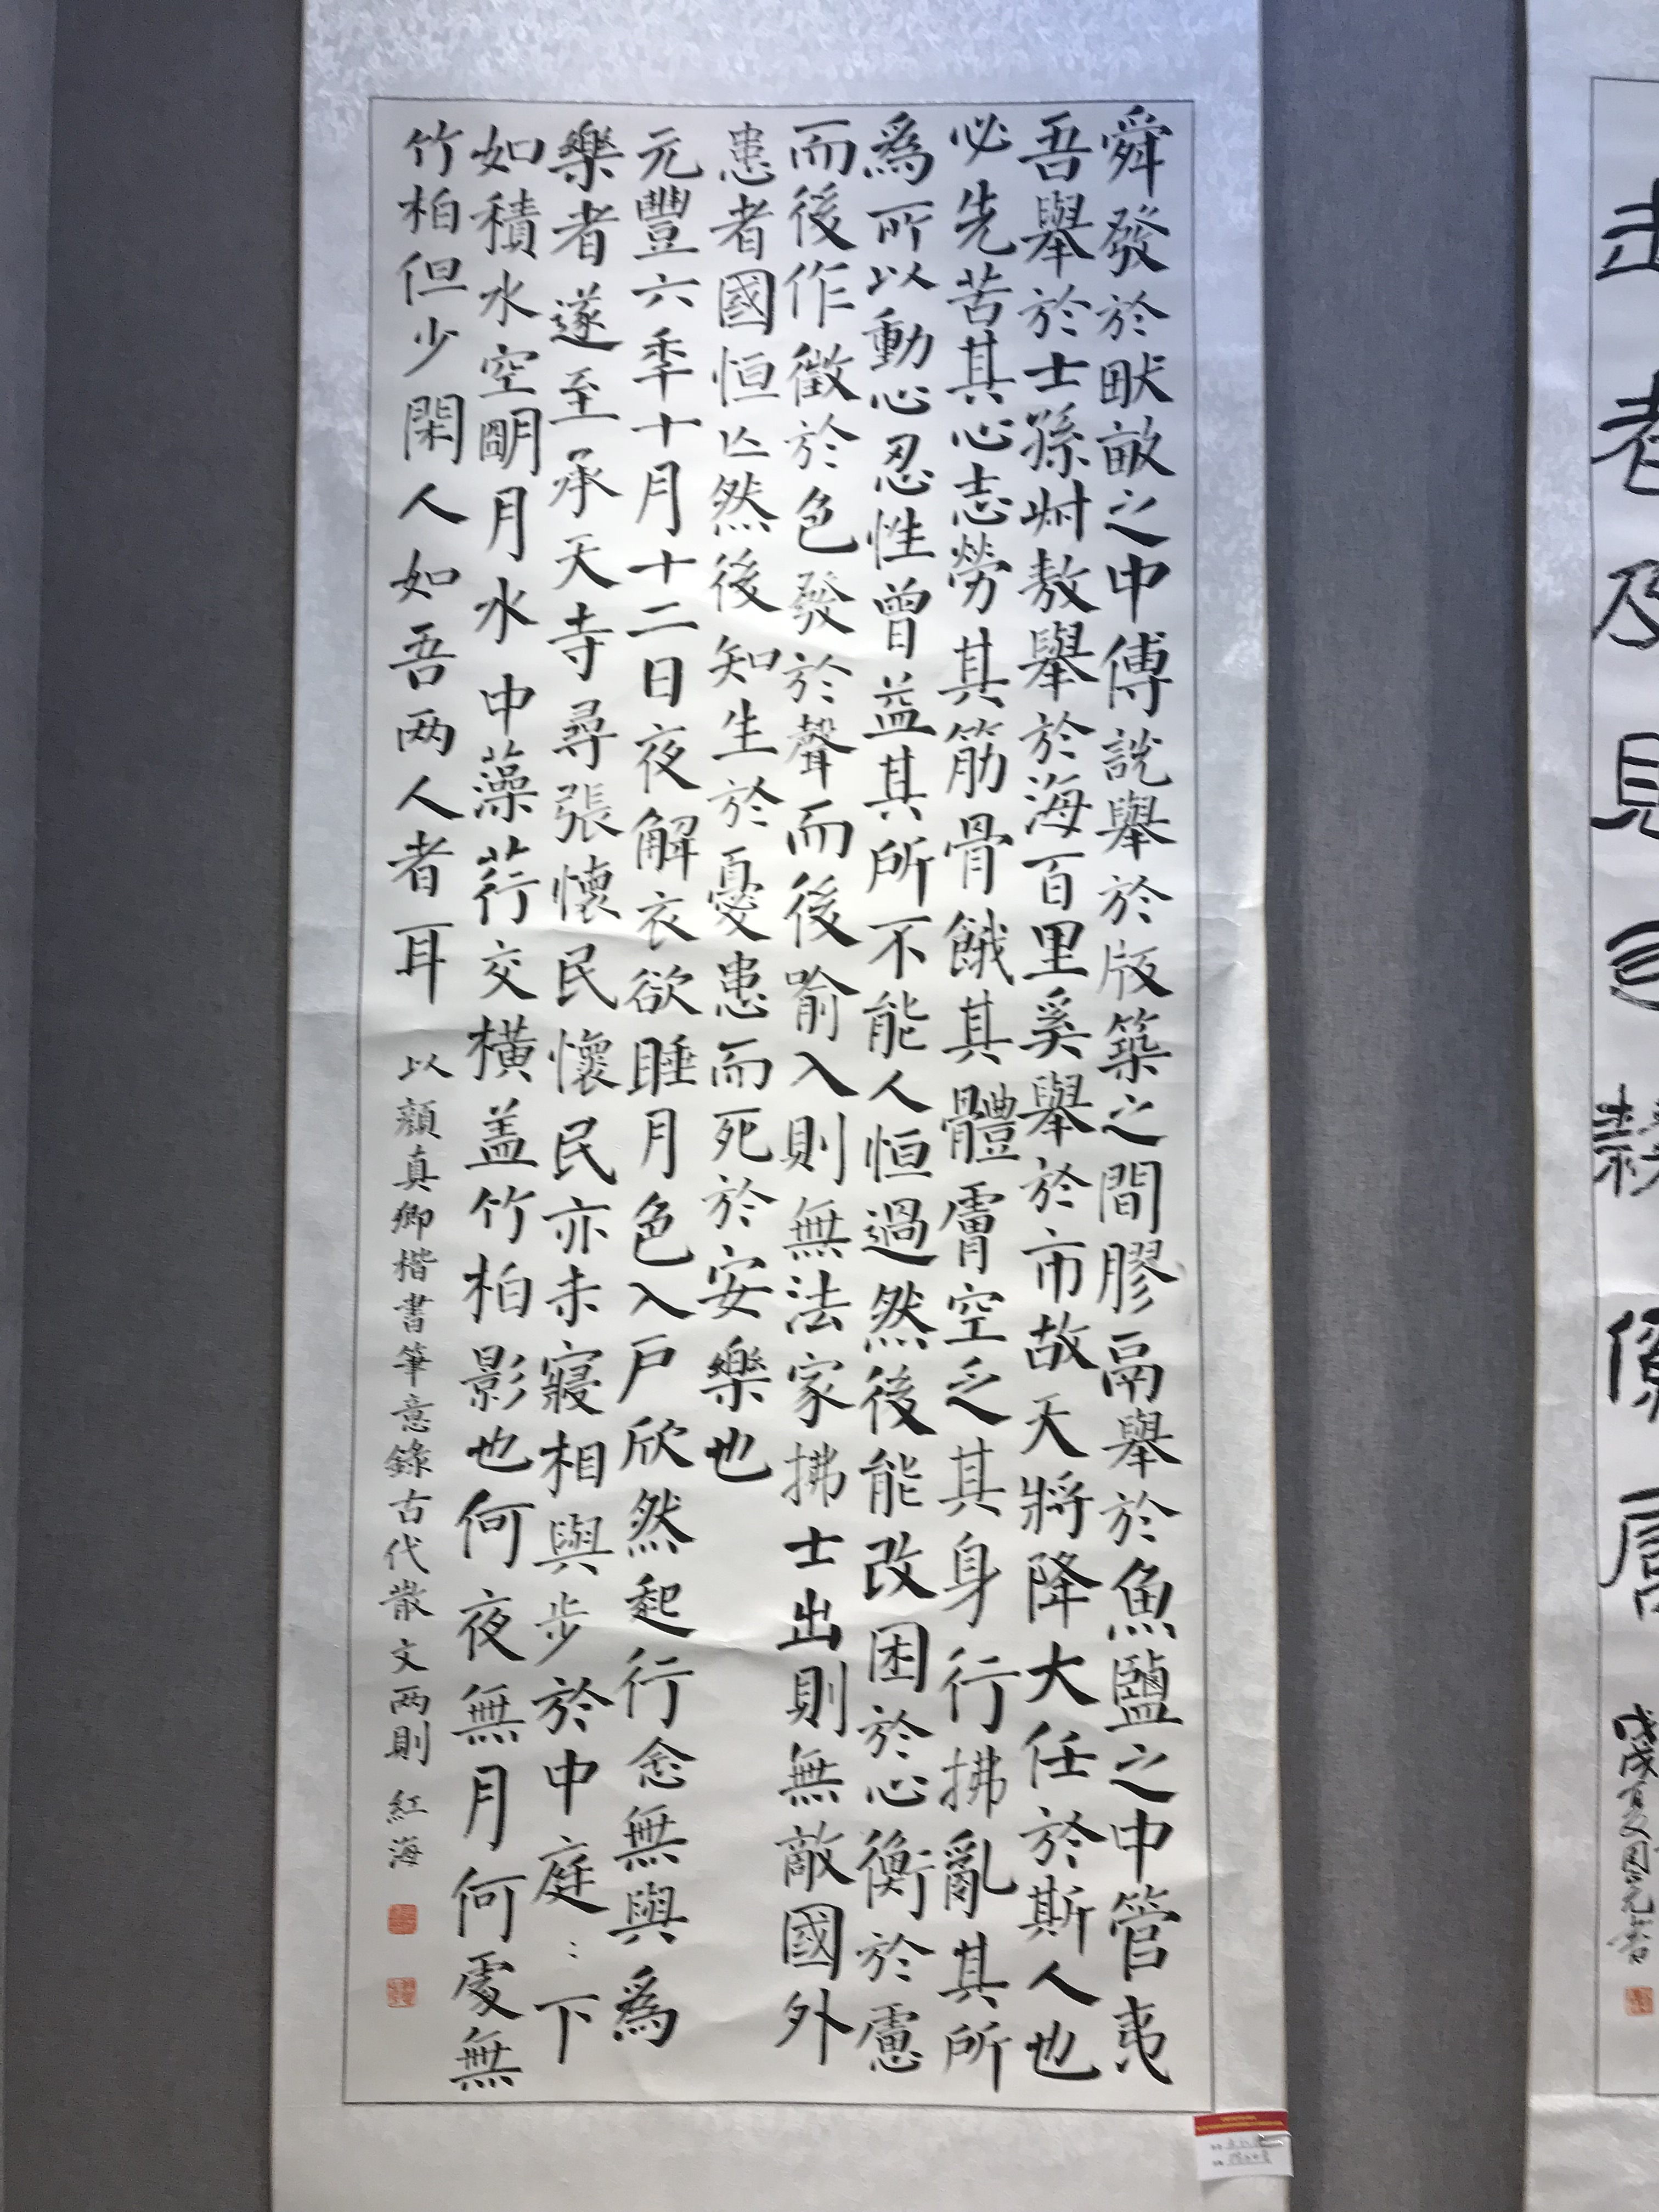 舜發於畎畝之中傅説舉於版築之間膠鬲舉於魚鹽之中管夷
吾舉於士孫叔敖舉於海百里奚舉於市故天將降大任於斯人也
必先苦其心志勞其筋骨餓其體膚空乏其身行拂亂其所
爲所以動心忍性曾益其所不能人恒過然後能改困於心衡於慮
而後作徵於色發於聲而後喻入則無法家拂士出則無敵國外
患者國恒亡然後知生於憂患而死於安樂也
元豐六季十月十二日夜解衣欲睡月色入戶欣然起行念無與爲
樂者遂至承天寺尋張懷民懷民亦未寢相與步於中庭：下
如積水空明月水中藻荇交橫盖竹柏影也何夜無月何處無
竹柏但少閑人如吾两人者耳
以顏真卿楷書筆意錄古代散文两則 紅海